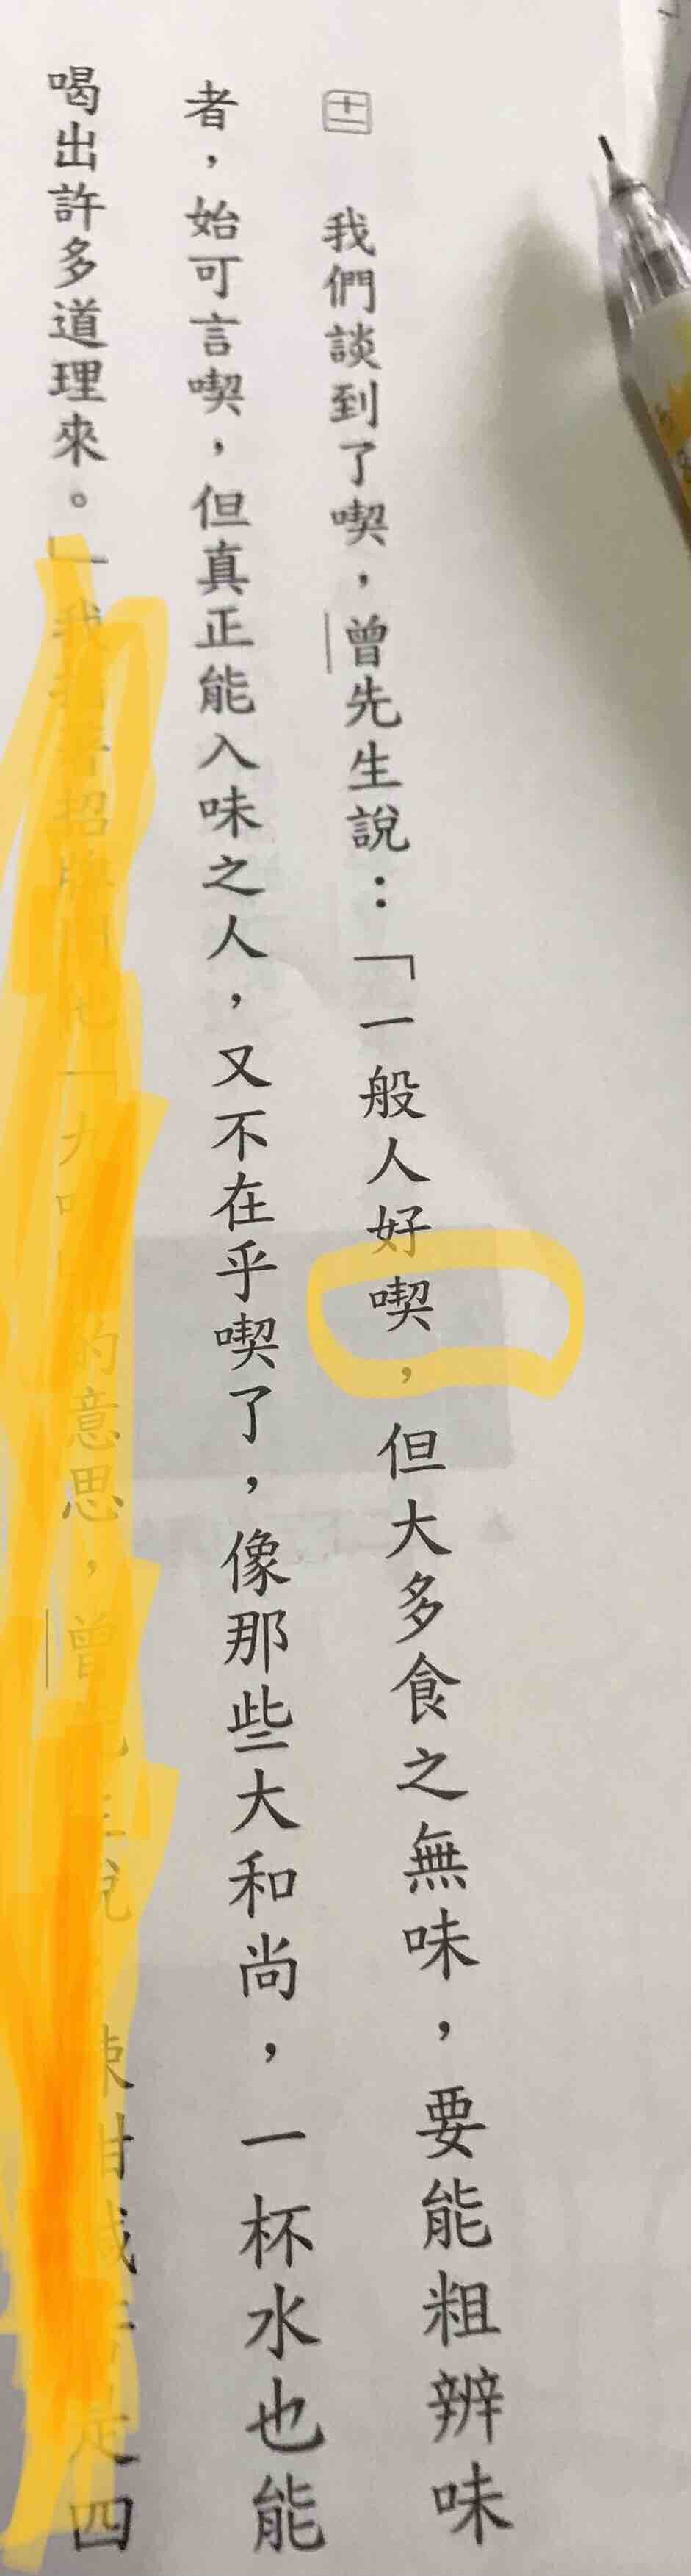 十一 我們談到了喫，曾先生說：「一般人好喫，但大多食之無味，要能粗辨味
者，始可言喫，但真正能入味之人，又不在乎喫了，像那些大和尚，一杯水也能
喝出許多道理來。」我 招 的意思，曾 四